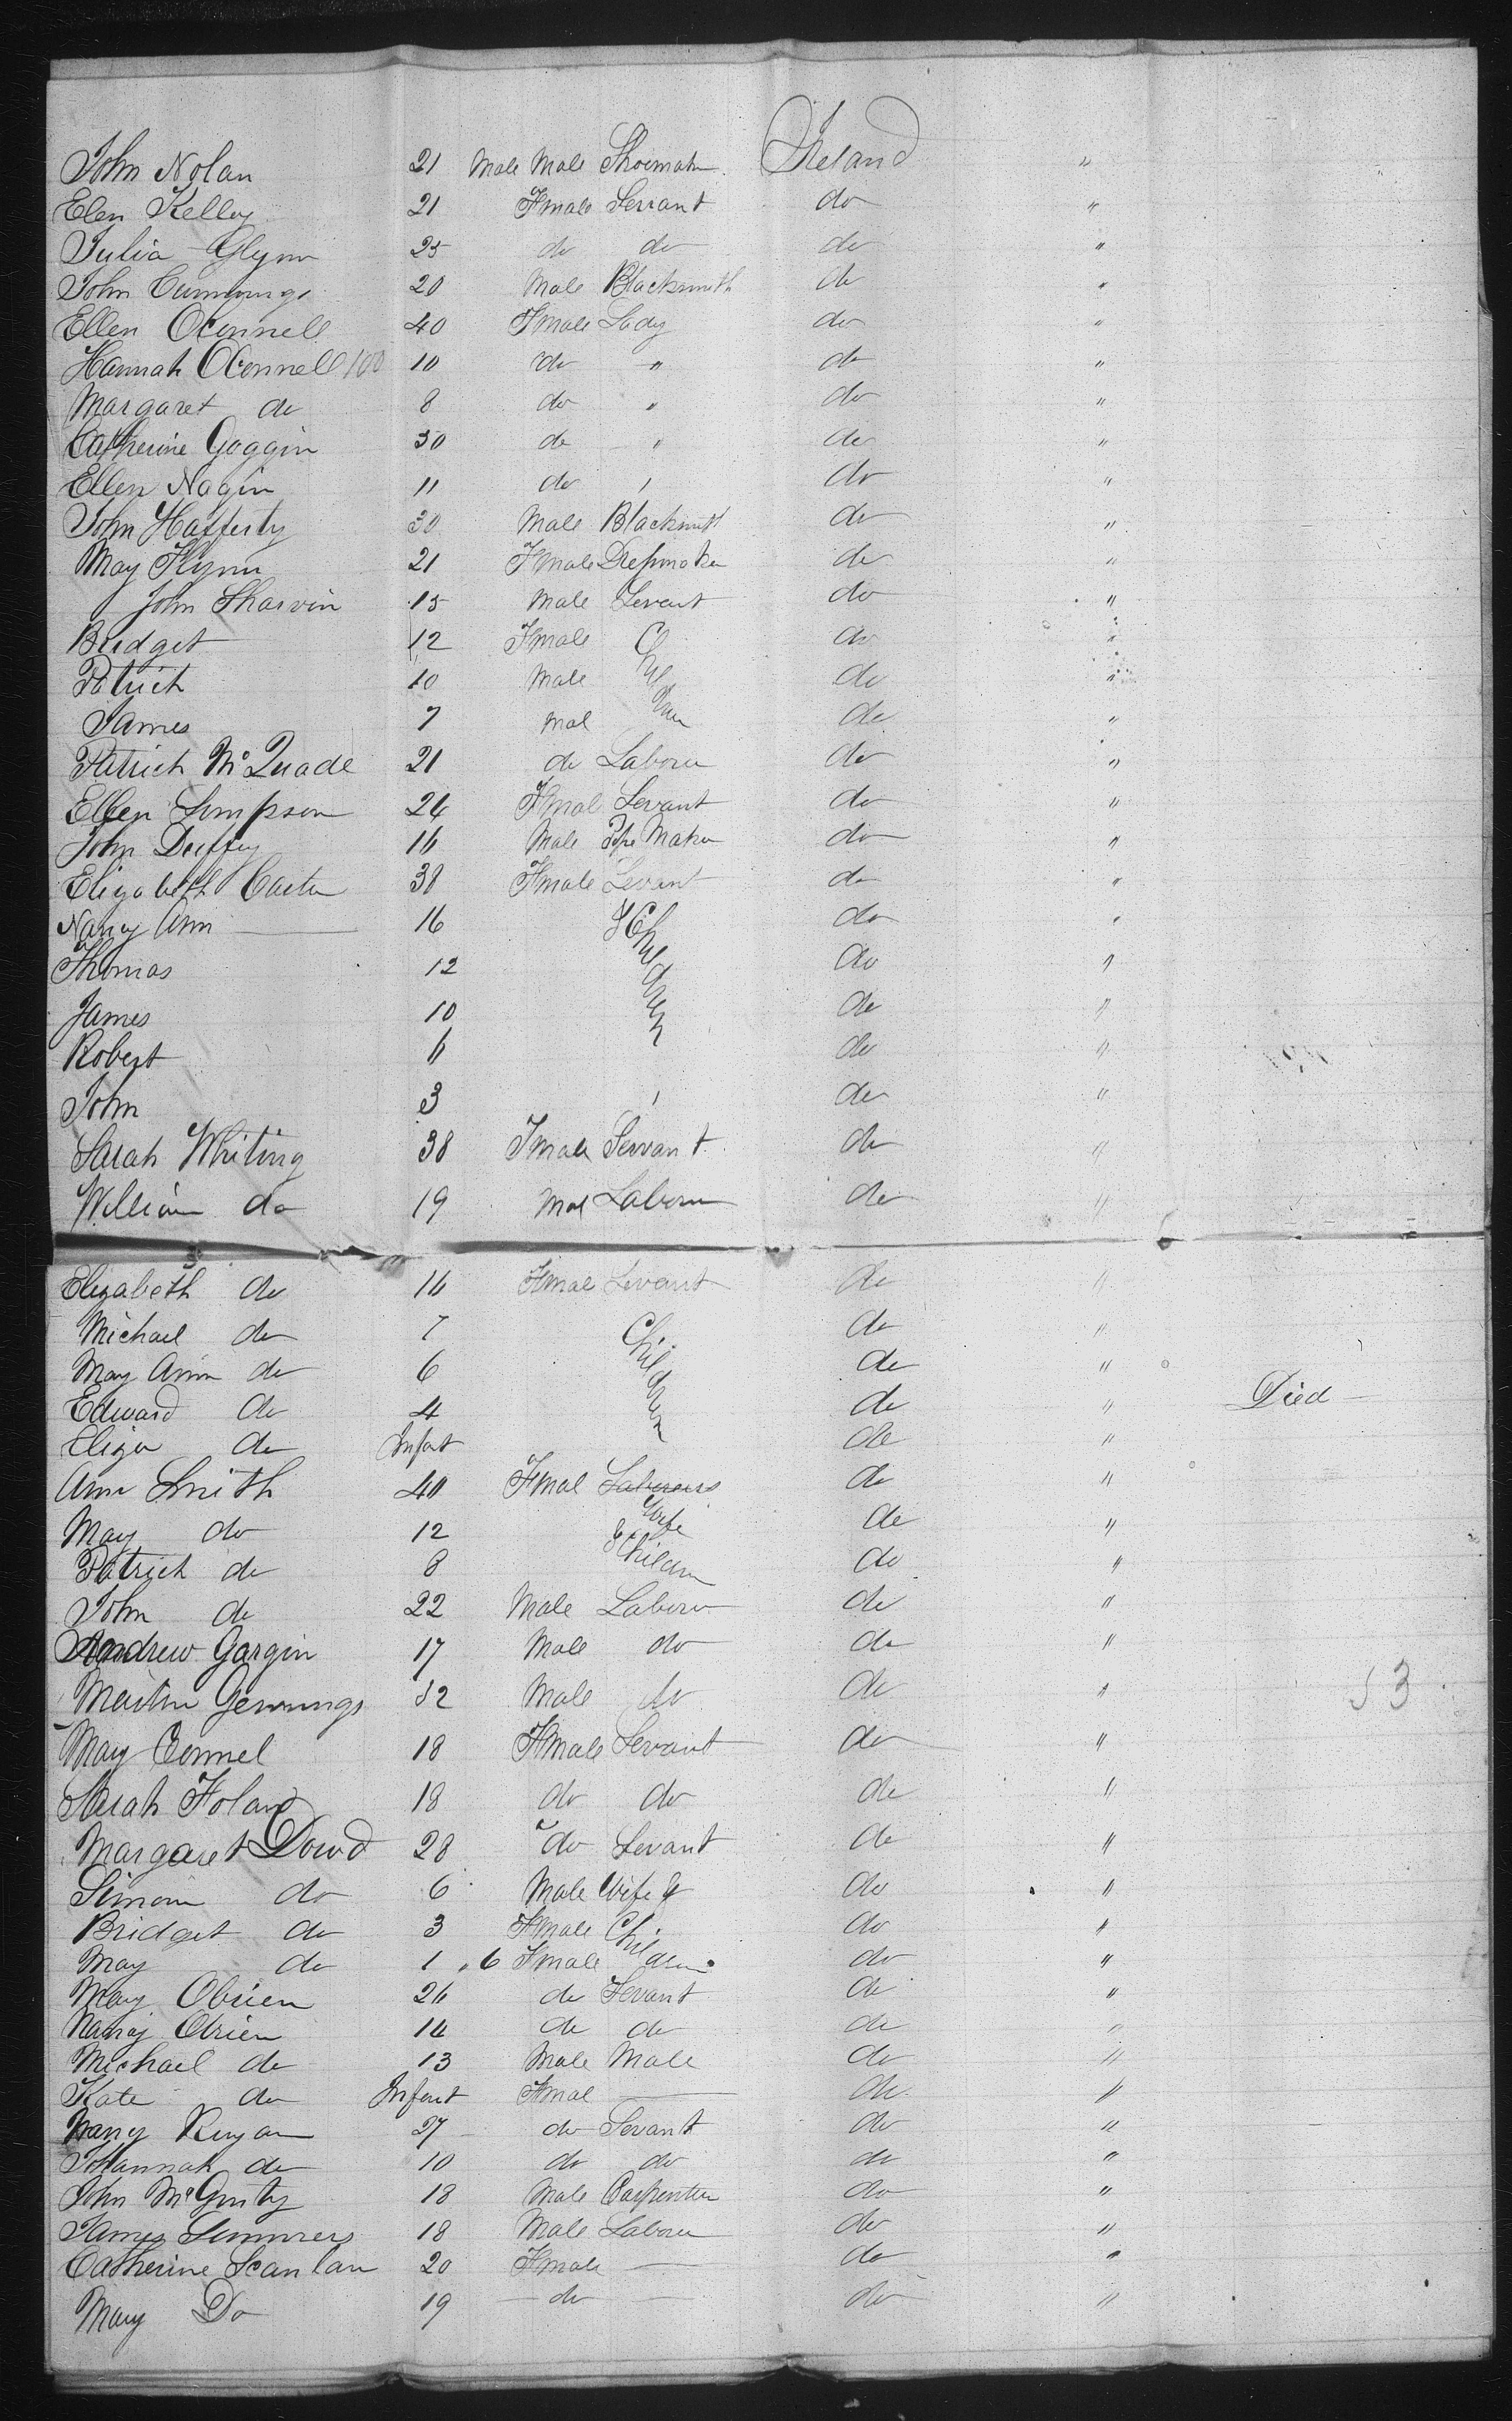 John Nolan 21 Male Male Shoemaker Ireland "
Elen Kelley 21 Fmale Servant do "
Julia Glynn 25 do do do "
John Cummings 20 Male Blacksmith do "
Ellen OConnell 40 Fmale Lady do "
Hannah OConnell 100 10 do " do "
Margaret do 8 do " do "
Catherine Goggin 30 do " do "
Ellen Nagin 11 do " do "
John Hafferty 30 Male Blacksmith do "
May Flynn 21 Fmale Dressmaker do "
John Sharvin 15 Male Sevant do "
Bridget 12 Fmale Children do "
Patrick 10 Male do "
James 7 Mal do "
Patrick McQuade 21 do Laborer do "
Ellen Simpson 24 Fmal Sevant do "
John Duffy 16 Male Pipe Maker do "
Elizabeth Carter 38 Fmale Sevant do "
Nancy Ann 16 & Children do "
Thomas 12 do "
James 10 do "
Robert 6 do "
John 3 do "
Sarah Whiting 38 Fmale Servant do "
William do 19 Mal Laborer do "
Elizabeth do 16 Fmal Sevant do "
Michael do 7 Children do "
May Ann do 6 do "
Edward do 4 do " Died
Eliza do Infant do "
Ann Smith 40 Fmal Laborers Wife do "
May do 12 & Children do "
Patrick do 8 do "
John do 22 Male Laborer do "
Andrew Gargin 17 Male do do "
Martin Gennings 32 Male do do " 53
May Connel 18 Fmale Sevant do "
Sarah Foland 18 do do do "
Margaret Dowd 28 do Sevant do "
Simon do 6 Male Wife & do "
Bridget do 3 Fmale Children do "
May do 1 . 6 Fmale do "
Mary Obrien 26 do Sevant do "
Nancy Obrien 14 do do do "
Michael do 13 Male Male do "
Kate do Infant Fmal do "
Nancy Ruyan 27 do Sevant do "
Johannah do 10 do do do "
John McGinty 18 Male Carpenter do "
James Simmers 18 Male Laborer do "
Catherine Scanlan 20 Fmale do "
Mary Do 19 do do "